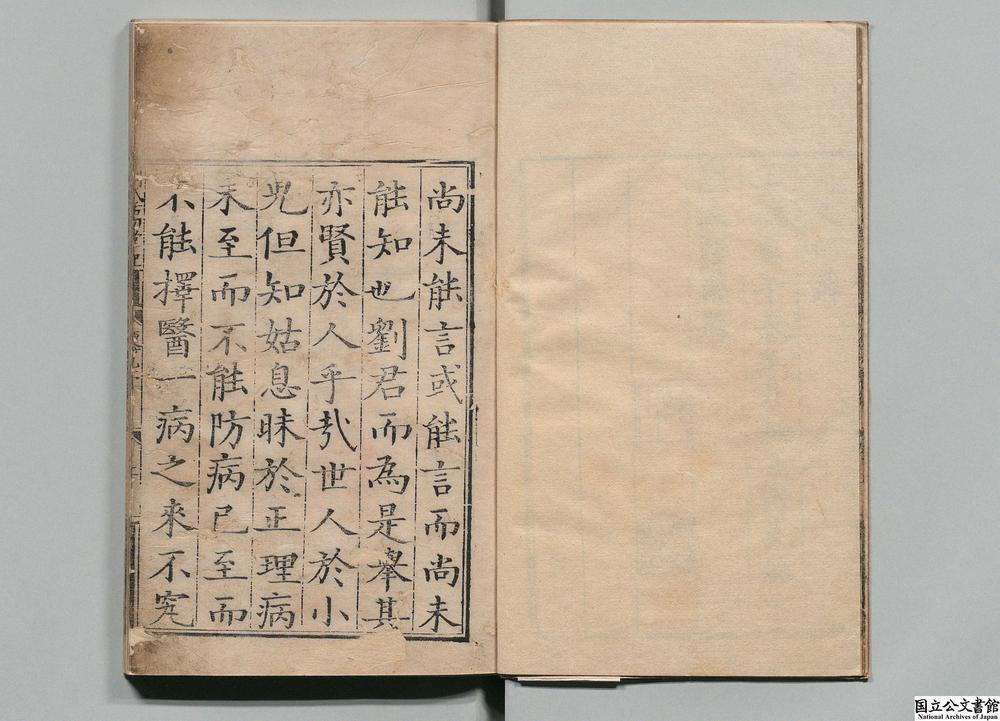 尚未能言或能言而尚未
能知也劉君而為是舉其
亦賢於人乎㢤世人於小
児但知姑息昧於正理病
未至而不能防病已至而
不能擇醫一病之來不究
国立公文書館
National Archives of Japan